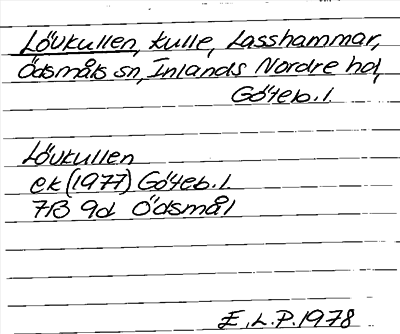 Lövkullen, kulle, Lasshammar,
Ödsmåls sn, Inlands Nordre hd,
Göteb. l.
Lövkullen
ek (1977) Göteb. l.
7B 9d Ödsmål
E.L.P. 1978